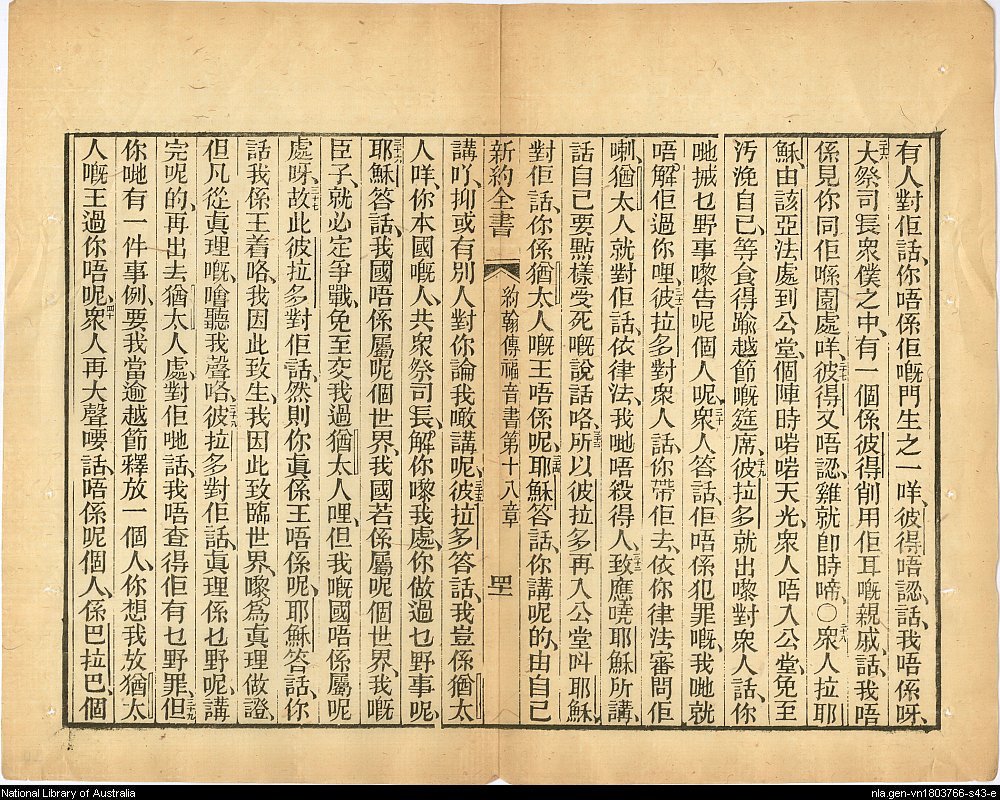 有人對佢話、你唔係佢嘅門生之一咩、彼得唔認話、我唔係呀、
二十六 大祭司長衆僕之中、有一個係彼得削用佢耳嘅親戚、話、我唔
係見你同佢喺園處咩、二十七 彼得又唔認、雞就卽時啼、〇 二十八 衆人拉耶
穌、由該亞法處到公堂、個陣時啱啱天光、衆人唔入公堂、免至
汚浼自己、等食得踰越節嘅筵席、二十九 彼拉多就出嚟對衆人話、你
哋揻乜野事嚟告呢個人呢、三十 衆人答話、佢唔係犯罪嘅、我哋就
唔解佢過你哩、三十一 彼拉多對衆人話、你帶佢去、依你律法審問佢
喇、猶太人就對佢話、依律法、我哋唔殺得人、三十二 致應嘵耶穌所講、
話自己要點樣受死嘅說話咯、三十三 所以彼拉多再入公堂呌耶穌
對佢話、你係猶太人嘅王唔係呢、三十四 耶穌答話、你講呢的、由自己
新約全書 約翰傳福音書第十八章 四十
講吖、抑或有別人對你論我噉講呢、三十五 彼拉多答話、我豈係猶太
人咩、你本國嘅人、共衆祭司長、解你嚟我處、你做過乜野事呢、
三十六 耶穌答話、我國唔係屬呢個世界、我國若係屬呢個世界、我嘅
臣子、就必定爭戰、免至交我過猶太人哩、但我嘅國唔係屬呢
處呀、三十七 故此彼拉多對佢話、然則你眞係王唔係呢、耶穌答話、你
話我係王着咯、我因此致生、我因此致臨世界嚟、爲眞理做證、
但凡從眞理嘅、噲聽我聲咯、三十八 彼拉多對佢話、眞理係乜野呢、講
完呢的、再出去猶太人處、對佢哋話、我唔查得佢有乜野罪、三十九 但
你哋有一件事例、要我當逾越節釋放一個人、你想我放猶太
人嘅王過你唔呢、四十 衆人再大聲嘜話、唔係呢個人、係巴拉巴、個
National Library of Australia
nla.gen-vn1803766-s43-e